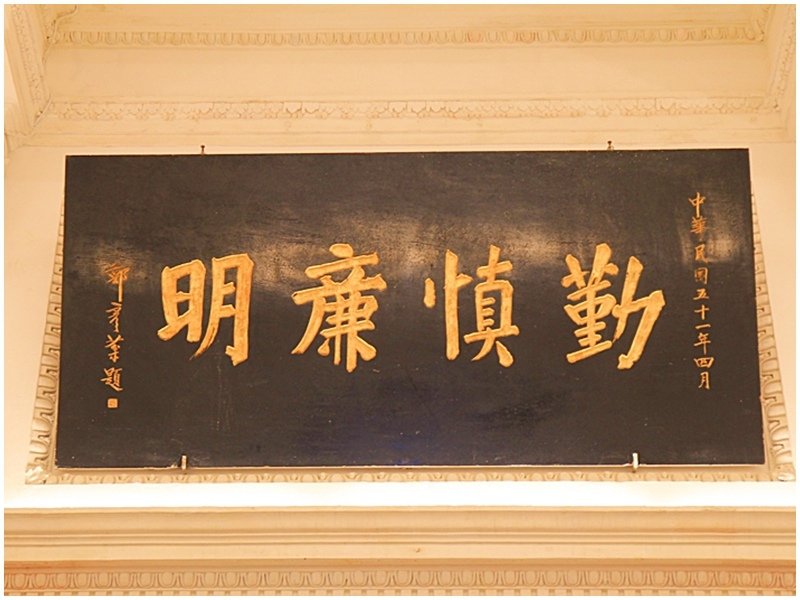 中華民國五十一年四月
勤慎廉明
鄭彥棻題